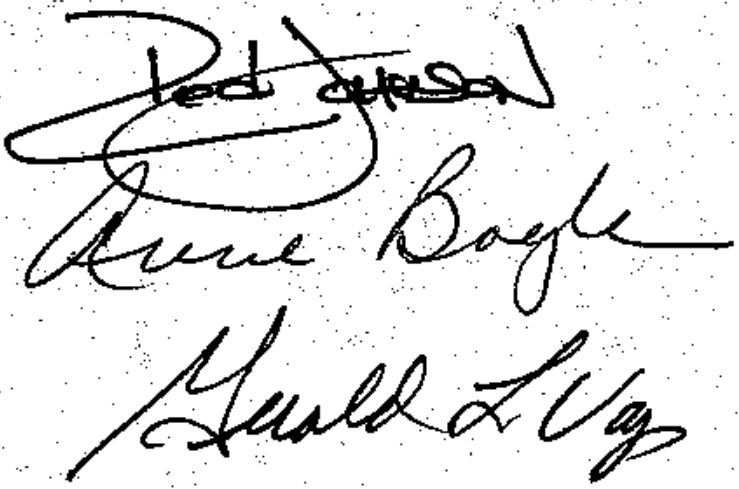 Rod Johnson
Anne Bogle
Gerald L Vog